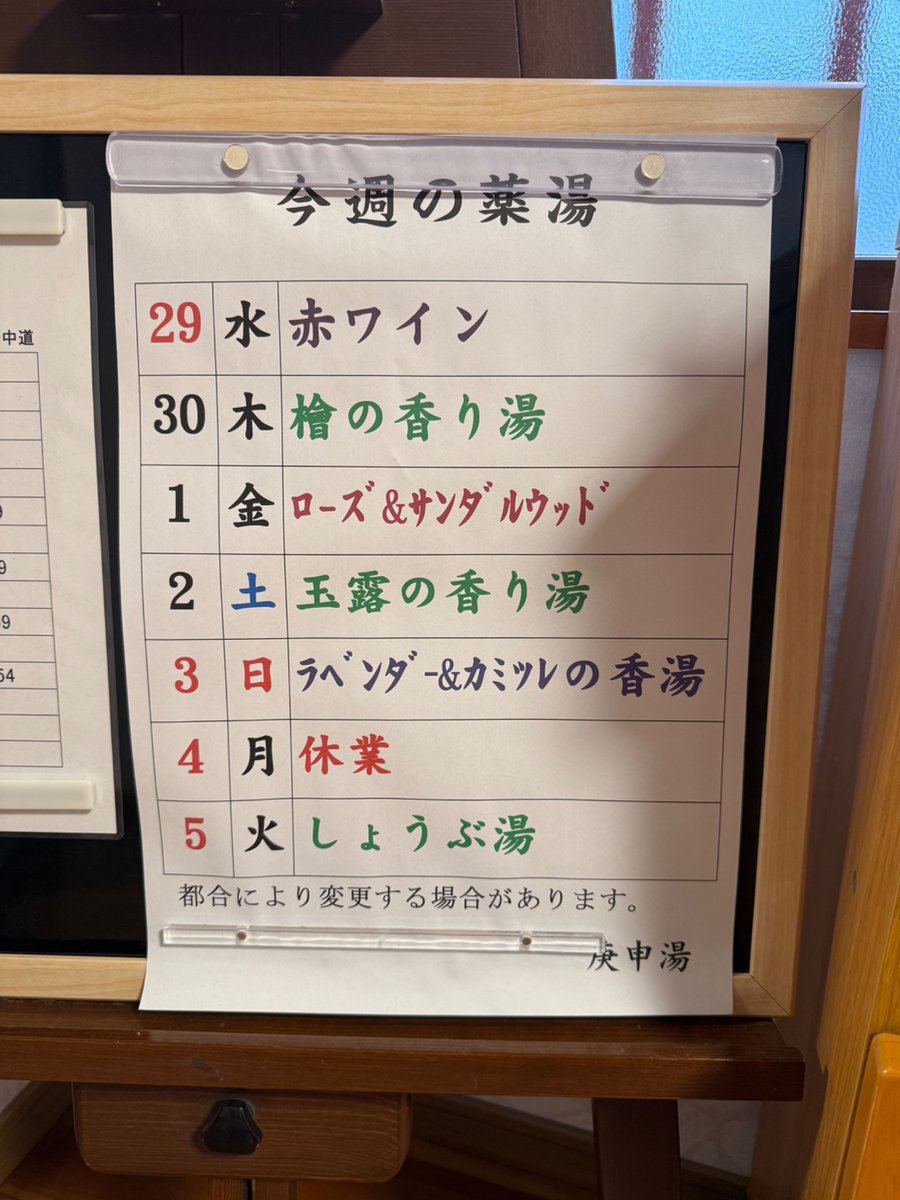 今週の薬湯
29 水 赤ワイン
30 木 檜の香り湯
1 金 ﾛｰｽﾞ&ｻﾝﾀﾞﾙｳｯﾄﾞ
2 土 玉露の香り湯
3 日 ﾗﾍﾞﾝﾀﾞｰ&ｶﾐﾂﾚの香湯
4 月 休業
5 火 しょうぶ湯
都合により変更する場合があります。
庚申湯
中道
9
9
59
54